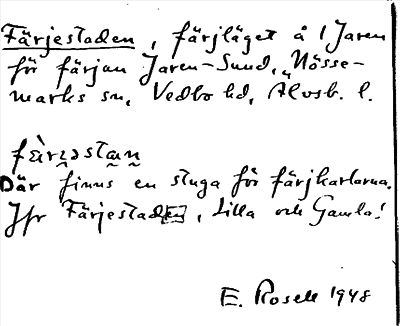 Färjestaden, färjläget å l Jaren
för färjan Jaren-Sund, Nösse-
marks sn, Vedbo hd, Älvsb. l.
Där finns en stuga för färjkarlarna.
Jfr Färjestaden, Lilla och Gamla!
E. Rosell 1948